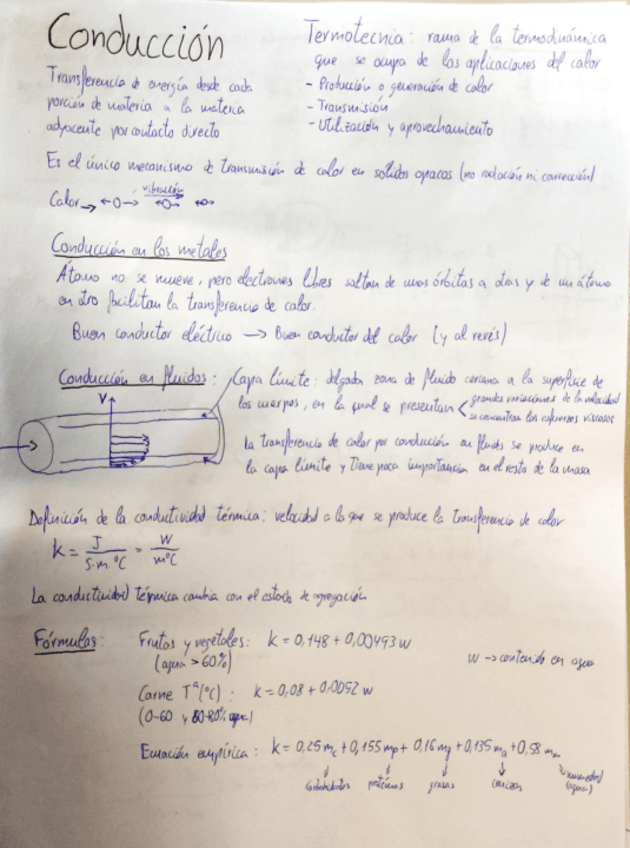 Conducción
Transferencia de energía desde cada
porción de materia a la materia
adyacente por contacto directo
Termotecnia: rama de la termodinámica
que se ocupa de las aplicaciones del calor
- Producción o generación de calor
- Transmisión
- Utilización y aprovechamiento
Es el único mecanismo de transmisión de calor en sólidos opacos (no radiación ni convección)
vibración
Calor → ←O→ ←O→ ←O→
Conducción en los metales
Átomo no se mueve, pero electrones libres saltan de unos órbitas a otras y de un átomo
en otro facilitan la transferencia de calor.
Buen conductor eléctrico → Buen conductor del calor (y al revés)
Conducción en fluidos:
Capa límite: delgada zona de fluido cercana a la superficie de
los cuerpos, en la cual se presentan < grandes variaciones de la velocidad
se concentran los esfuerzos viscosos
La transferencia de calor por conducción en fluidos se produce en
la capa límite y tiene poca importancia en el resto de la masa
V
Definición de la conductividad térmica: velocidad a la que se produce la transferencia de calor
k = J / s·m·ºC = W / mºC
La conductividad térmica cambia con el estado de agregación
Fórmulas:
Frutas y vegetales: k = 0,148 + 0,00493 w
(agua > 60%)
w → contenido en agua
Carne Tª(ºC): k = 0,08 + 0,0052 w
(0-60 y 60-80% agua)
Ecuación empírica: k = 0,25 mc + 0,155 mp + 0,16 mg + 0,135 ma + 0,58 mm
↓ ↓ ↓ ↓
carbohidratos proteínas grasas cenizas humedad
(agua)